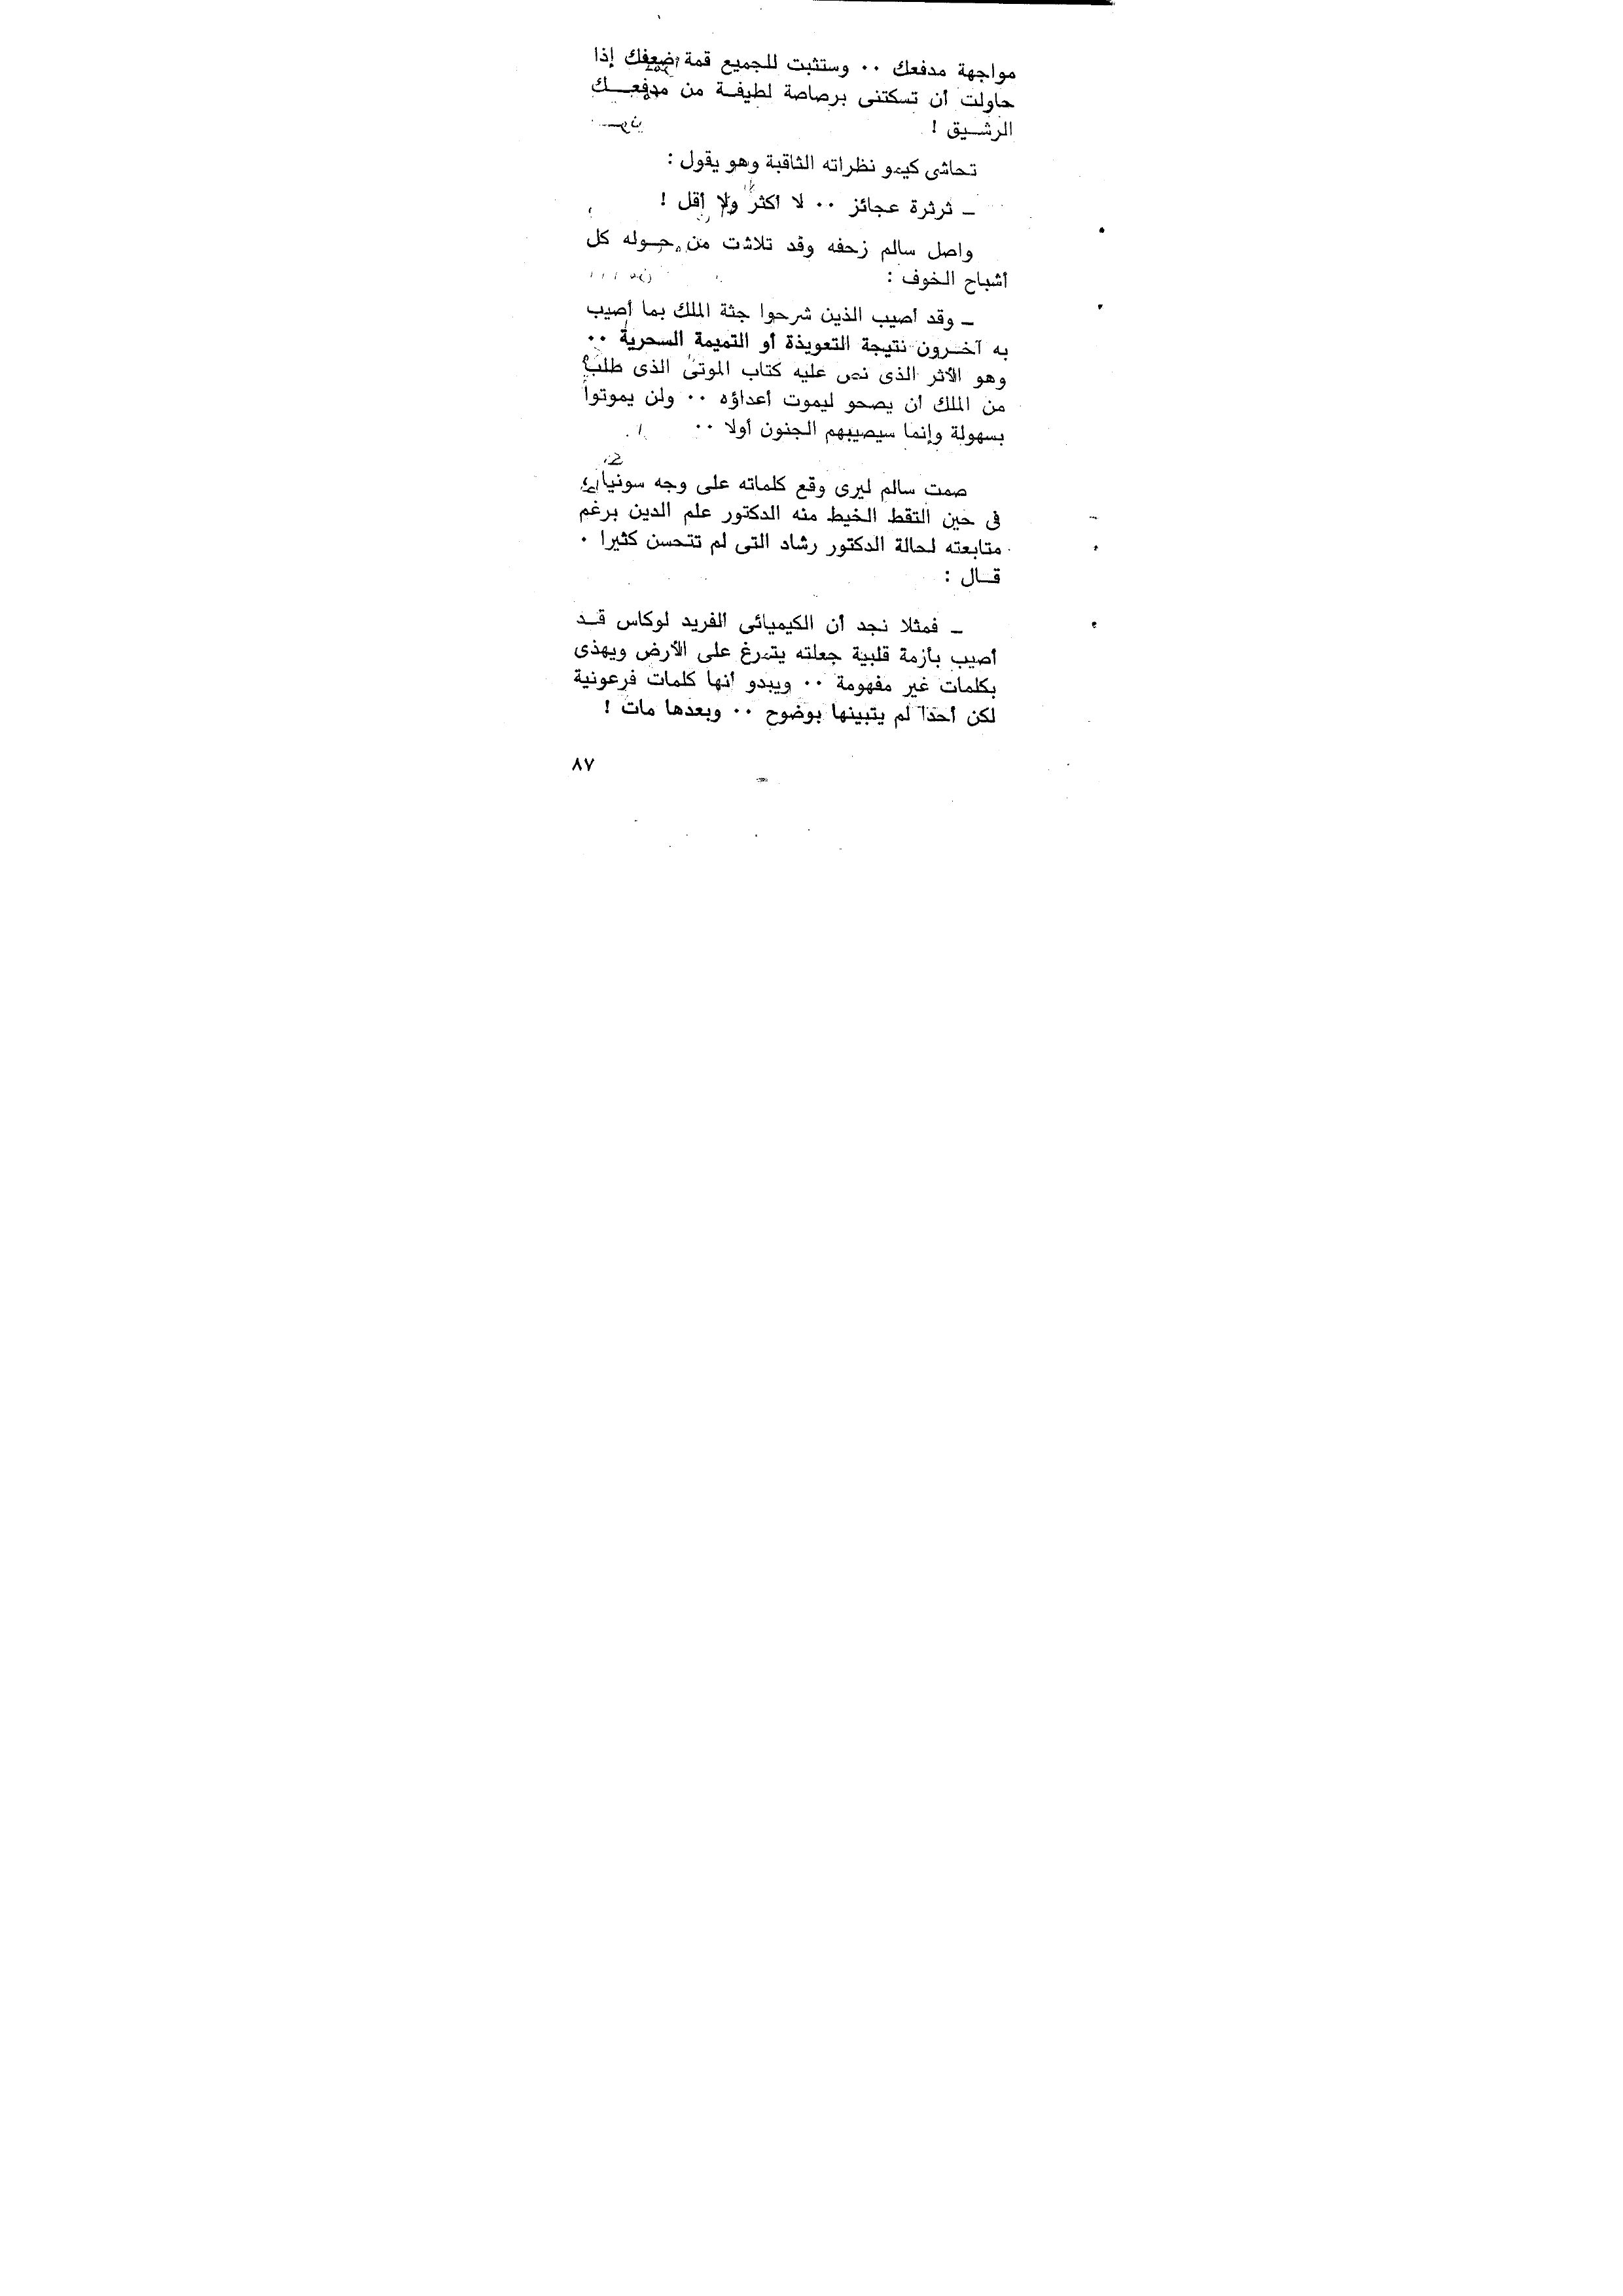 مواجهة مدفعك ٠٠ وستثبت للجميع قمة ضعفك إذا
حاولت أن تسكتنى برصاصة لطيفــة من مدفعــــك
الرشــيق !
تحاشى كيمو نظراته الثاقبة وهو يقول :
ــ ثرثرة عجائز ٠٠ لا أكثر ولا أقل !
واصل سالم زحفه وقد تلاشت من حــوله كل
أشباح الخوف :
ــ وقد أصيب الذين شرحوا جثة الملك بما أصيب
به آخــرون نتيجة التعويذة أو التميمة السحرية ٠٠
وهو الأثر الذى نص عليه كتاب الموتى الذى طلب
من الملك أن يصحو ليموت أعداؤه ٠٠ ولن يموتوا
بسهولة وإنما سيصيبهم الجنون أولا ٠٠
صمت سالم ليرى وقع كلماته على وجه سونيا ،
فى حين التقط الخيط منه الدكتور علم الدين برغم
متابعته لحالة الدكتور رشاد التى لم تتحسن كثيرا ٠
قــال :
ــ فمثلا نجد أن الكيميائى الفريد لوكاس قــد
أصيب بأزمة قلبية جعلته يتمرغ على الأرض ويهذى
بكلمات غير مفهومة ٠٠ ويبدو أنها كلمات فرعونية
لكن أحدا لم يتبينها بوضوح ٠٠ وبعدها مات !
٨٧